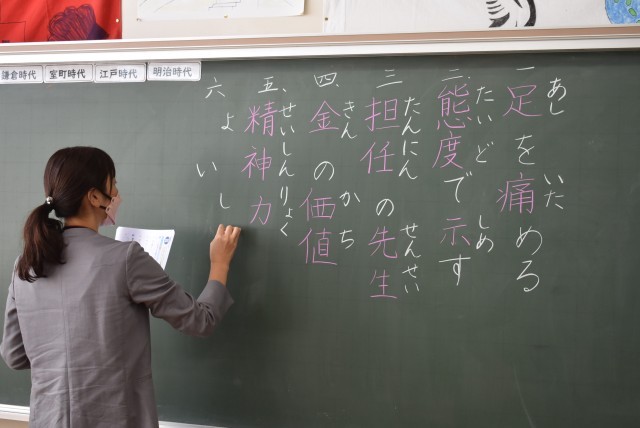 鎌倉時代
室町時代
江戸時代
明治時代
一足を痛める
あし いた
二、態度で示す
たいど しめ
三担任の先生
たんにん せんせい
四、金の価値
きん かち
五、精神力
せいしんりょく
六よいし